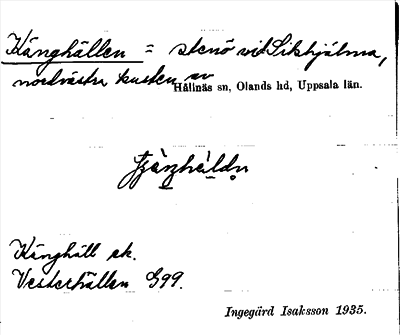 Känghällen = stenö vid Sikhjälma,
nordvästra kusten av
Hållnäs sn, Olands hd, Uppsala län.
Känghäll sk.
Vesterhällen G99.
Ingegärd Isaksson 1935.